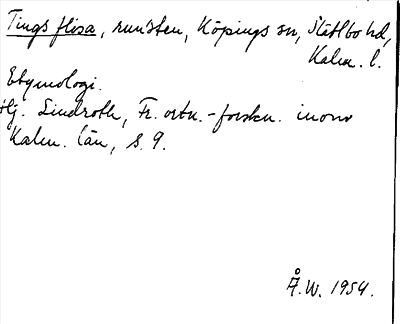 Tings flisa, runsten, Köpings sn, Slättbo hd,
Kalm. l.
Etymologi.
Hj. Lindroth, Fr. ortn.-forskn. inom
Kalm. län, s. 9.
Å.W. 1954.